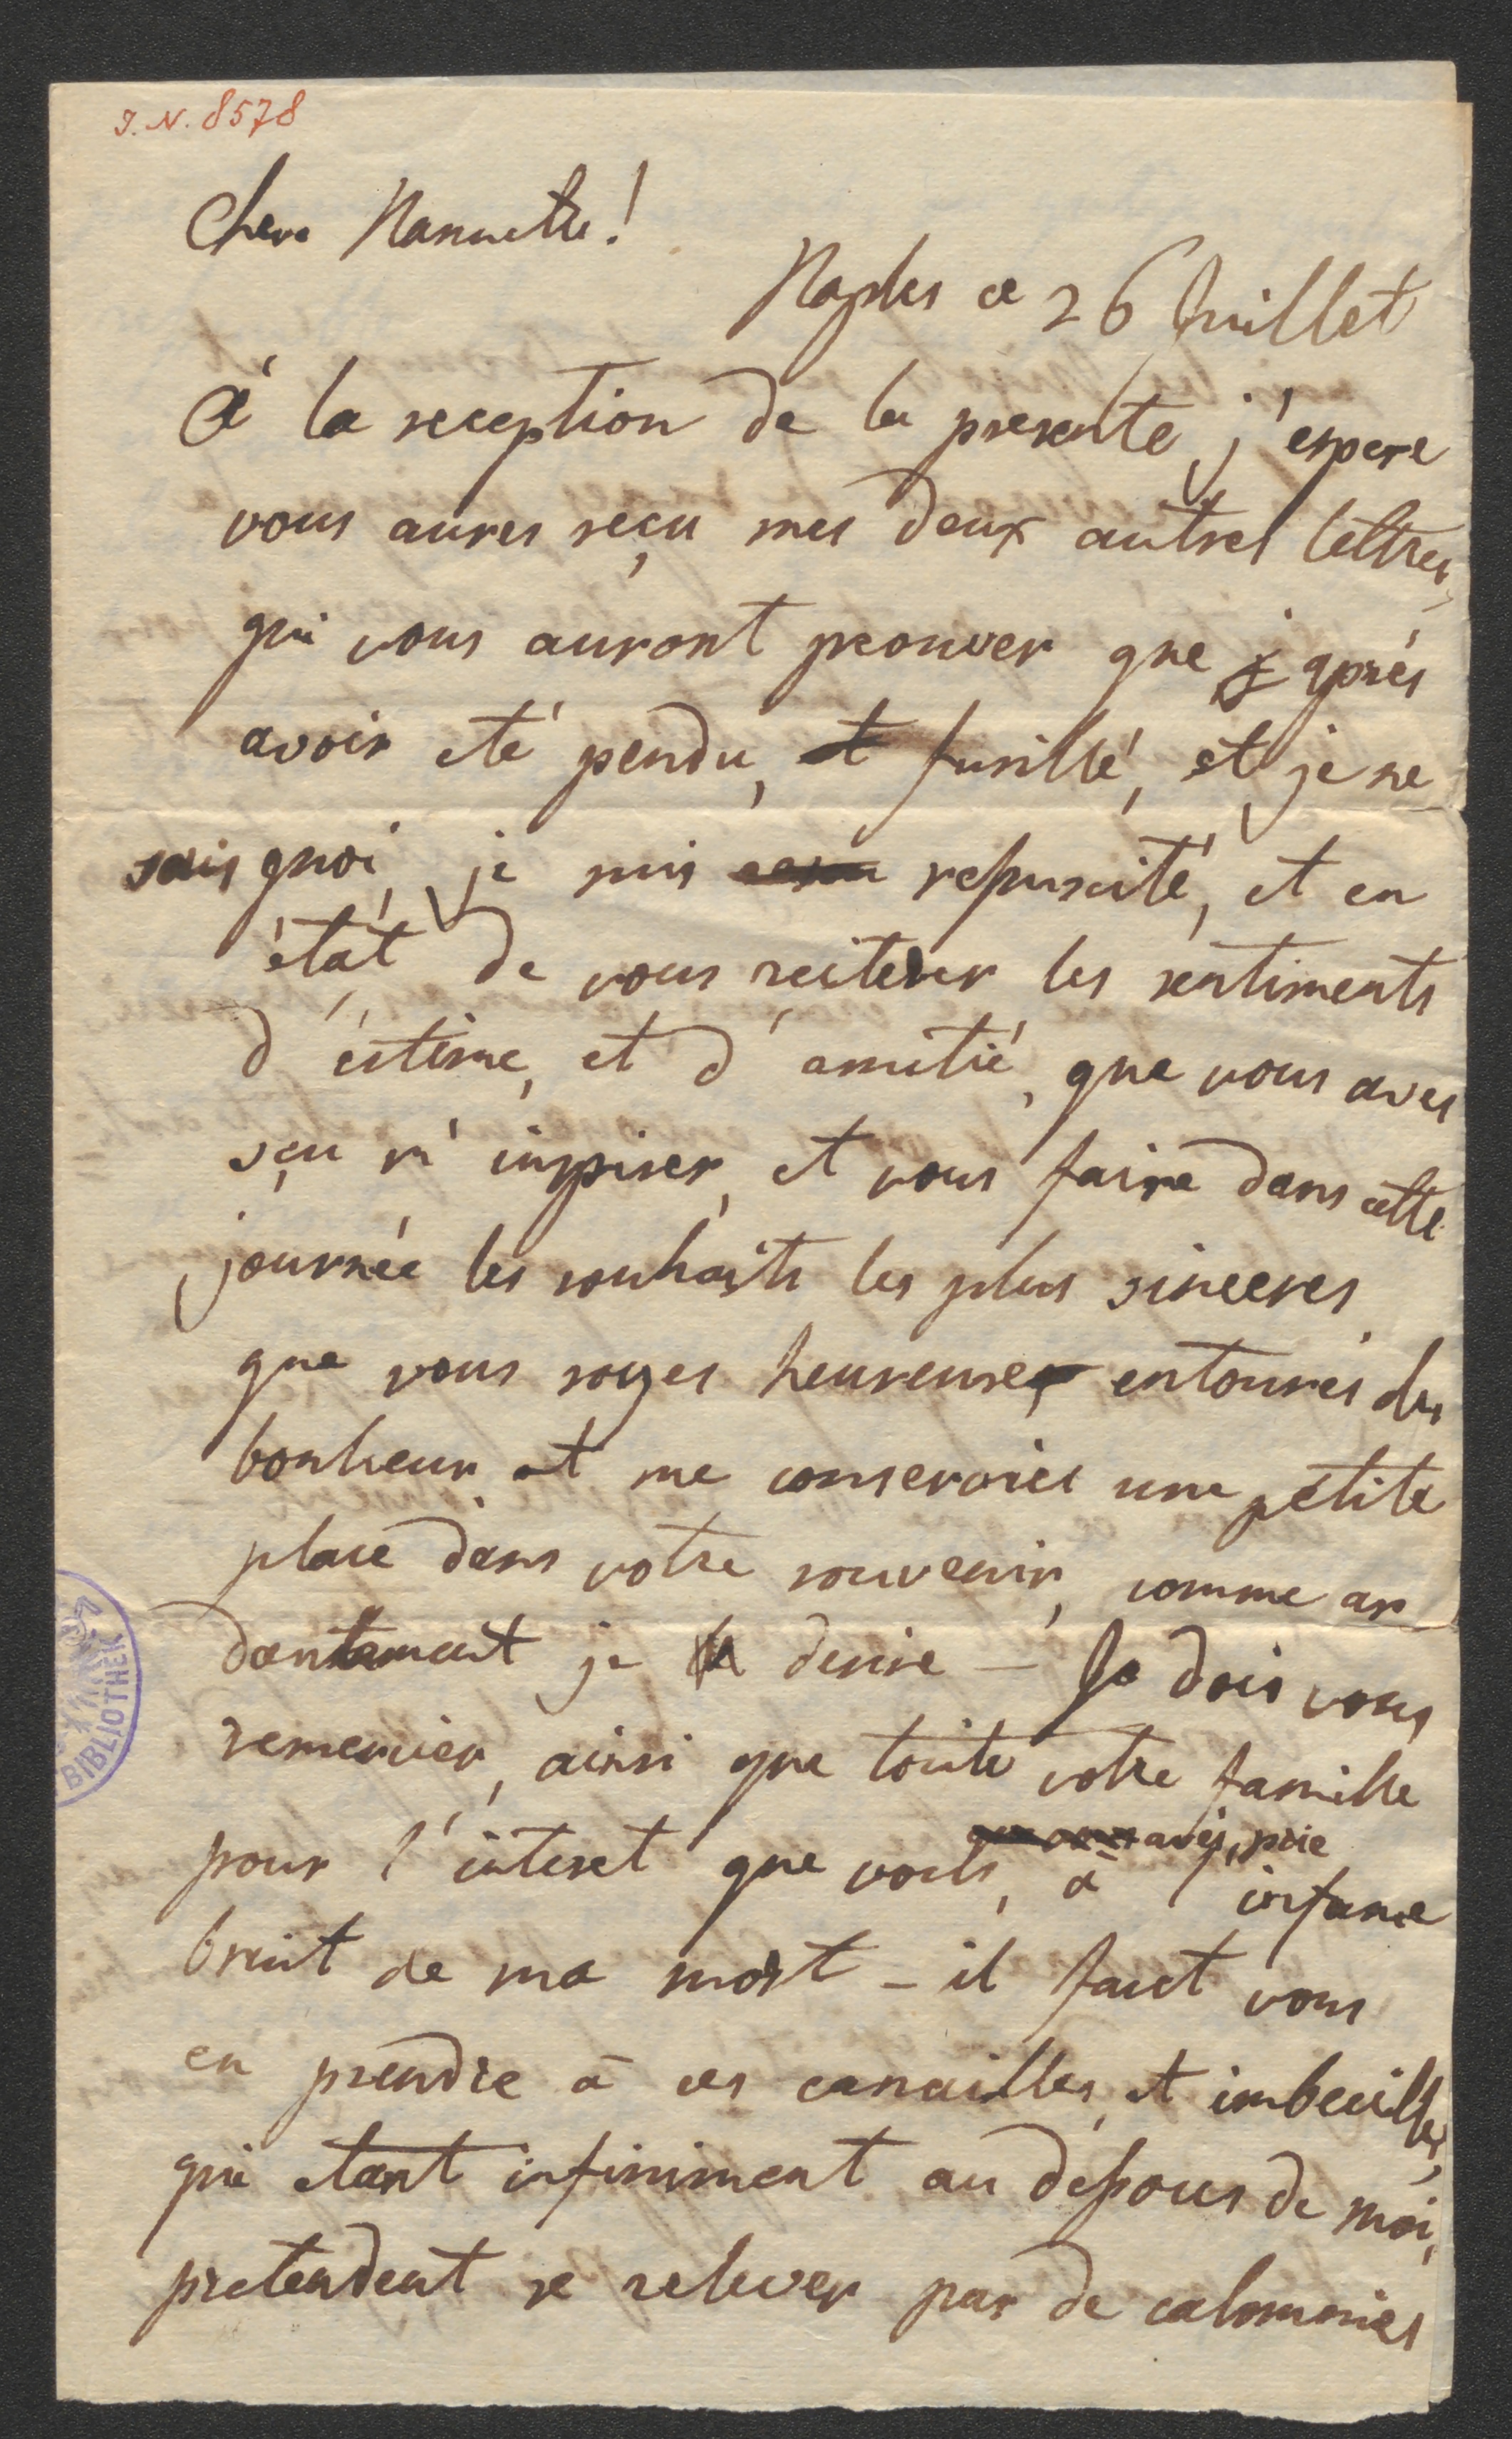 I.N. 8578
Chere Nannette!
Naples ce 26 Juillet
à la reception de la presente j'espere
vous aures reçu mes deux autres lettres,
qui vous auront prouver que après
avoir eté pendu, fusillé, et je ne
sais quoi, je suis ressuscité, et en
état de vous reiterer les sentiments
d'éstime, et d'amitié, que vous aves
sçu m'inspirer, et vous faire dans cette
journée les souhaits les plus sinceres,
que vous soyes heureuse entourés du
bonheur et me conservies une petite
place dans votre souvenir, comme ar
dantement je le desire – Je dois vous
remercier, ainsi que toute votre famille
avés, prie
pour l'interet que vous, à l'infame
bruit de ma mort – il faut vous
en prendre à ces canailles, et imbecilles,
qui etant infiniment au dessous de moi,
pretendent se relever par de calomnies
BIBLIOTHEK